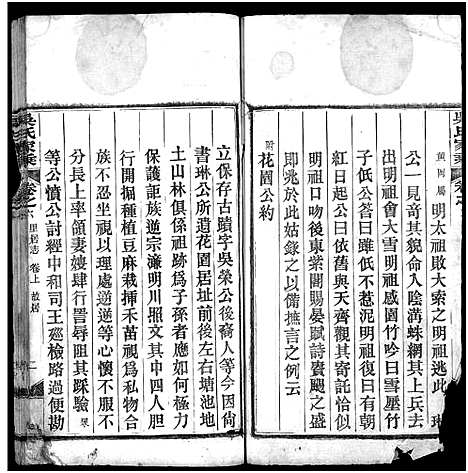 吳氏家乘 卷之
黃岡屬 明太祖敗大索之明祖逃此
公一見奇其貌命入陰溝蛛網其上兵去
出明祖會大雪明祖感園竹吟曰雪壓竹
子低公答曰雖低不惹泥明祖復曰有朝
紅日起公答曰與天齊竟試驗公恰似
明祖口吻後東紫閣賜晏賦詩賣颺之盛
即兆於此姑錄之以備撫言之例云
附 花園公約
立保存古蹟字吳榮公後裔人等今因尙
書琳公所遺花園居址前後左右塘池地
土山林俱係祖跡爲子孫者應如何極力
保護詎族逆宗濂明川照文其中四人胆
行開掘種植豆麻栽揷禾苗視爲私物合
族不忍坐視以理處逆等心懷不服不
長以上率領妻嫂肆行詈辱阻其踩驗 眾
等公憤公討經中和司王廵檢路過便勘
吳氏家乘 卷之六 里居志 卷上 故居 二